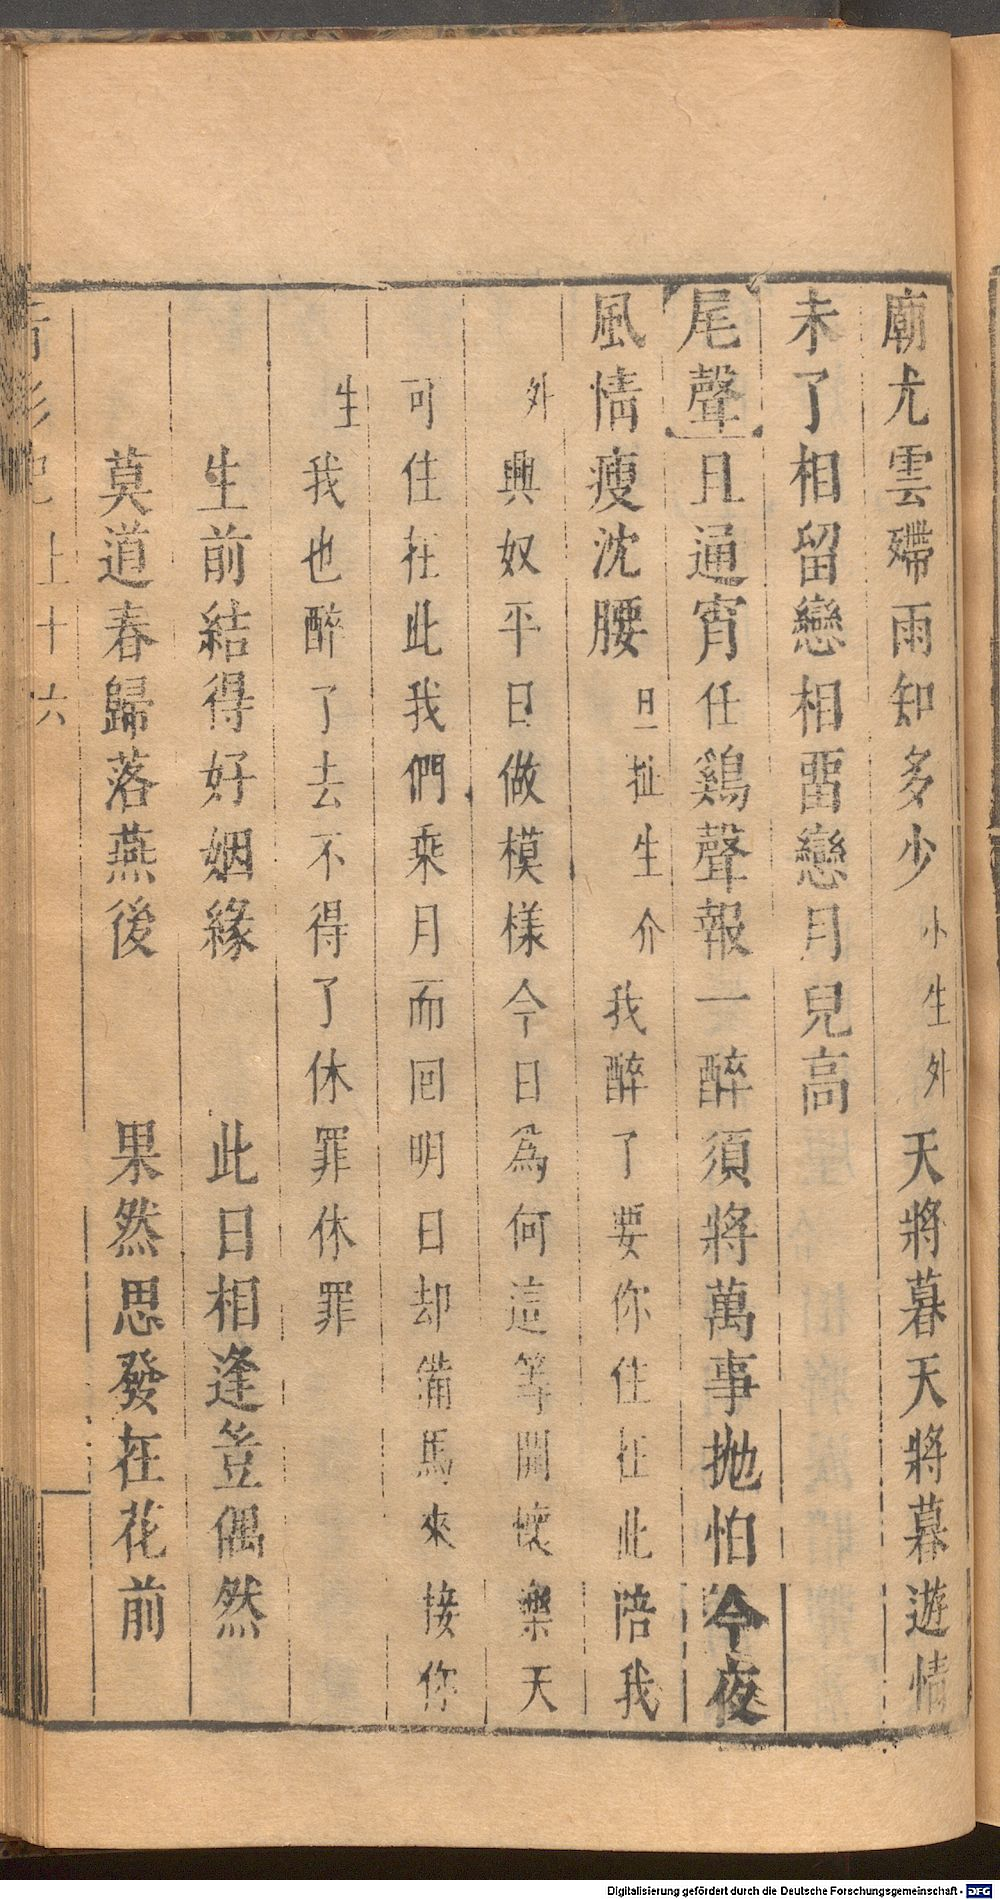 廟尤雲殢雨知多少小生外天將暮天將暮遊情
未了相留戀相畱戀月兒高
尾聲且通宵任鷄聲報一醉須將萬事拋怕今夜
風情瘦沈腰旦扯生介我醉了要你住在此陪我
外興奴平日做模樣今日為何這等開懷樂天
可住在此我們乘月而回明日却備馬來接你
生我也醉了去不得了休罪休罪
生前結得好姻緣 此日相逢豈偶然
莫道春歸落燕後 果然思發在花前
上十六
Digitalisierung gefördert durch die Deutsche Forschungsgemeinschaft - DFG